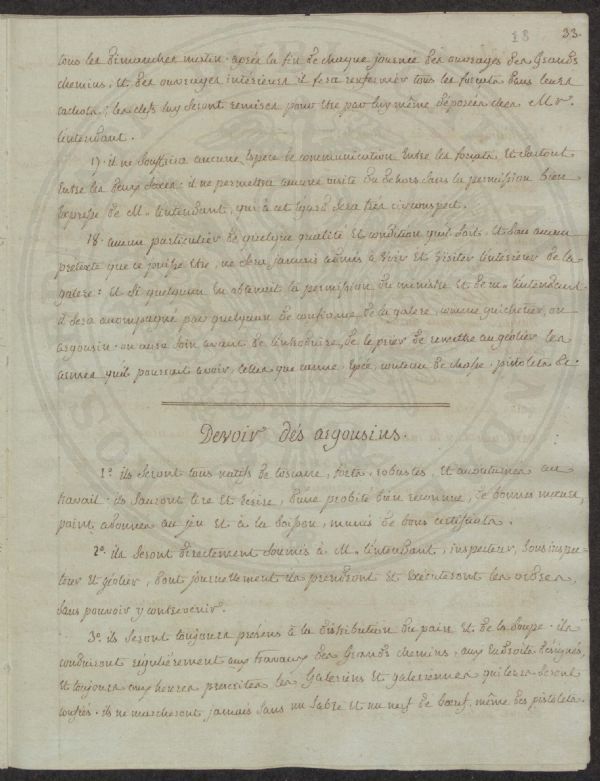 18 33.
tous les dimanches matin. après la fin de chaque journée des ouvrages des Grands
chemins, et des ouvrages intérieurs il fera renfermer tous les forçats dans leurs
cachots; les clefs luy seront remises pour être par luy même déposées chez Mr.
l'intendant.
17. il ne souffrira aucune espece de communication entre les forçats et surtout
entre les deux sexes. il ne permettra aucune visite du dehors sans la permission bien
expresse de Mr. l'intendant, qui à cet égard sera très circonspect.
18. aucun particulier de quelque qualité et condition qu'il soit, et sous aucun
pretexte que ce puisse être, ne sera jamais admis à voir et visiter l'interieur de la
galere: et si quelqu'un en obtenoit la permission du ministre et de mr. l'intendant
il sera accompagné par quelqu'un de confiance de la galere, comme guichetier, ou
argousin. on aura soin avant de l'introduire, de le prier de remettre au géolier les
armes qu'il pourroit avoir, telles que canne, épée, couteau de chasse, pistolets &c.
Devoir des argousins.
1.º ils seront tous natifs de toscane, forts, robustes, et accoutumés au
travail. ils sauront lire et écrire, d'une probité bien reconnue, de bonnes mœurs,
point adonnés au jeu et à la boisson, munis de bons certificats.
2.º ils seront directement soumis à Mr. l'intendant, inspecteur, sous inspec-
teur et géolier, dont journellement ils prendront et exécuteront les ordres,
sans pouvoir y contrevenir.
3.º ils seront toujours présens à la distribution du pain et de la soupe. ils
conduiront régulièrement aux travaux des Grands chemins, aux endroits désignés,
et toujours aux heures prescrites les Galeriens et galeriennes qui leurs seront
confiés. ils ne marcheront jamais sans un sabre et un nerf de bœuf, même des pistolets.